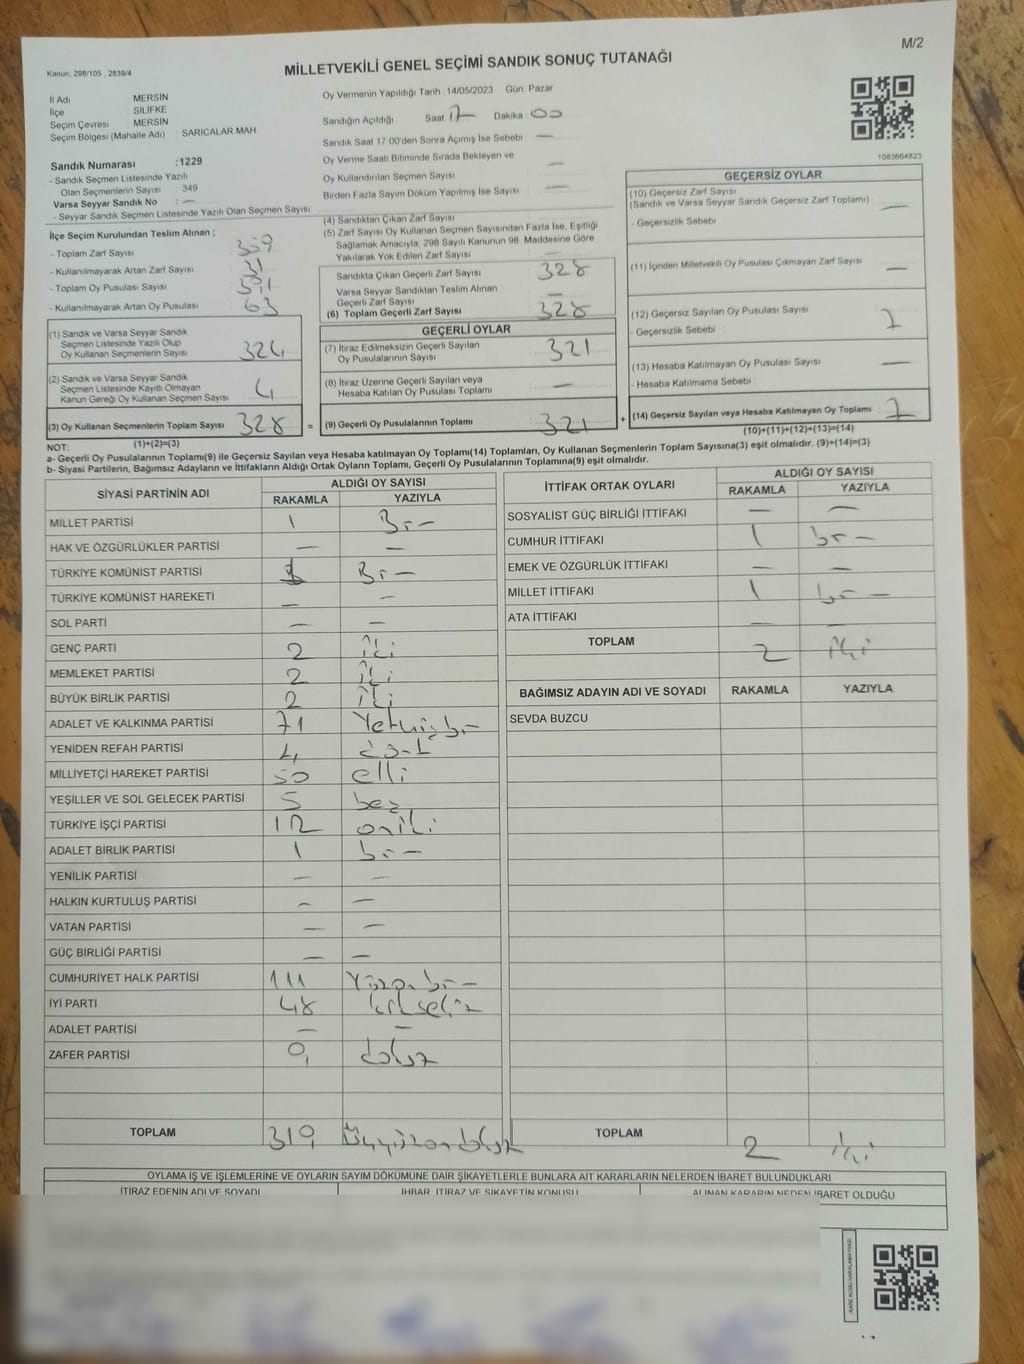 M/2
Kanun: 298/105 , 2839/4
MİLLETVEKİLİ GENEL SEÇİMİ SANDIK SONUÇ TUTANAĞI
İl Adı MERSİN
İlçe SİLİFKE
Seçim Çevresi MERSİN
Seçim Bölgesi (Mahalle Adı) : SARICALAR MAH
Sandık Numarası :1229
- Sandık Seçmen Listesinde Yazılı
Olan Seçmenlerin Sayısı : 349
Varsa Seyyar Sandık No : —
- Seyyar Sandık Seçmen Listesinde Yazılı Olan Seçmen Sayısı:
Oy Vermenin Yapıldığı Tarih :14/05/2023 Gün: Pazar
Sandığın Açıldığı Saat : 17 Dakika : 00
Sandık Saat 17:00'den Sonra Açımış İse Sebebi —
Oy Verme Saati Bitiminde Sırada Bekleyen ve
Oy Kullandırılan Seçmen Sayısı —
Birden Fazla Sayım Döküm Yapılmış İse Sayısı —
1083664823
İlçe Seçim Kurulundan Teslim Alınan ;
- Toplam Zarf Sayısı : 359
- Kullanılmayarak Artan Zarf Sayısı : 31
- Toplam Oy Pusulası Sayısı : 391
- Kullanılmayarak Artan Oy Pusulası : 63
(1) Sandık ve Varsa Seyyar Sandık
Seçmen Listesinde Yazılı Olup
Oy Kullanan Seçmenlerin Sayısı 324
(2) Sandık ve Varsa Seyyar Sandık
Seçmen Listesinde Kayıtlı Olmayan
Kanun Gereği Oy Kullanan Seçmen Sayısı 4
(3) Oy Kullanan Seçmenlerin Toplam Sayısı 328
(1)+(2)=(3)
(4) Sandıktan Çıkan Zarf Sayısı
(5) Zarf Sayısı Oy Kullanan Seçmen Sayısından Fazla İse, Eşitliği
Sağlamak Amacıyla, 298 Sayılı Kanunun 98. Maddesine Göre
Yakılarak Yok Edilen Zarf Sayısı
Sandıkta Çıkan Geçerli Zarf Sayısı 328
Varsa Seyyar Sandıktan Teslim Alınan
Geçerli Zarf Sayısı —
(6) Toplam Geçerli Zarf Sayısı 328
GEÇERLİ OYLAR
(7) İtiraz Edilmeksizin Geçerli Sayılan
Oy Pusulalarının Sayısı 321
(8) İtiraz Üzerine Geçerli Sayılan veya
Hesaba Katılan Oy Pusulası Toplamı —
= (9) Geçerli Oy Pusulalarının Toplamı 321 +
GEÇERSİZ OYLAR
(10) Geçersiz Zarf Sayısı
(Sandık ve Varsa Seyyar Sandık Geçersiz Zarf Toplamı) —
- Geçersizlik Sebebi :
(11) İçinden Milletvekili Oy Pusulası Çıkmayan Zarf Sayısı —
(12) Geçersiz Sayılan Oy Pusulası Sayısı 7
- Geçersizlik Sebebi :
(13) Hesaba Katılmayan Oy Pusulası Sayısı —
- Hesaba Katılmama Sebebi :
(14) Geçersiz Sayılan veya Hesaba Katılmayan Oy Toplamı 7
(10)+(11)+(12)+(13)=(14)
NOT:
a- Geçerli Oy Pusulalarının Toplamı(9) ile Geçersiz Sayılan veya Hesaba katılmayan Oy Toplamı(14) Toplamları, Oy Kullanan Seçmenlerin Toplam Sayısına(3) eşit olmalıdır. (9)+(14)=(3)
b- Siyasi Partilerin, Bağımsız Adayların ve İttifakların Aldığı Ortak Oyların Toplamı, Geçerli Oy Pusulalarının Toplamına(9) eşit olmalıdır.
SİYASİ PARTİNİN ADI ALDIĞI OY SAYISI
RAKAMLA YAZIYLA
MİLLET PARTİSİ 1 Bir —
HAK VE ÖZGÜRLÜKLER PARTİSİ — —
TÜRKİYE KOMÜNİST PARTİSİ 1 Bir —
TÜRKİYE KOMÜNİST HAREKETİ — —
SOL PARTİ — —
GENÇ PARTİ 2 iki
MEMLEKET PARTİSİ 2 iki
BÜYÜK BİRLİK PARTİSİ 2 iki
ADALET VE KALKINMA PARTİSİ 71 Yetmişbir
YENİDEN REFAH PARTİSİ 4 dört
MİLLİYETÇİ HAREKET PARTİSİ 50 elli
YEŞİLLER VE SOL GELECEK PARTİSİ 5 beş
TÜRKİYE İŞÇİ PARTİSİ 12 oniki
ADALET BİRLİK PARTİSİ 1 bir —
YENİLİK PARTİSİ — —
HALKIN KURTULUŞ PARTİSİ — —
VATAN PARTİSİ — —
GÜÇ BİRLİĞİ PARTİSİ — —
CUMHURİYET HALK PARTİSİ 111 Yüzonbir —
İYİ PARTİ 48 kırksekiz
ADALET PARTİSİ — —
ZAFER PARTİSİ 9 dokuz
TOPLAM 319 Üçyüzondokuz
İTTİFAK ORTAK OYLARI ALDIĞI OY SAYISI
RAKAMLA YAZIYLA
SOSYALİST GÜÇ BİRLİĞİ İTTİFAKI — —
CUMHUR İTTİFAKI 1 bir —
EMEK VE ÖZGÜRLÜK İTTİFAKI — —
MİLLET İTTİFAKI 1 bir —
ATA İTTİFAKI — —
TOPLAM 2 iki
BAĞIMSIZ ADAYIN ADI VE SOYADI RAKAMLA YAZIYLA
SEVDA BUZCU
TOPLAM 2 iki
OYLAMA İŞ VE İŞLEMLERİNE VE OYLARIN SAYIM DÖKÜMÜNE DAİR ŞİKAYETLERLE BUNLARA AİT KARARLARIN NELERDEN İBARET BULUNDUKLARI
İTİRAZ EDENİN ADI VE SOYADI İHBAR, İTİRAZ VE ŞİKAYETİN KONUSU ALINAN KARARIN NEDEN İBARET OLDUĞU
KARE KODU KARALAMAYINIZ!